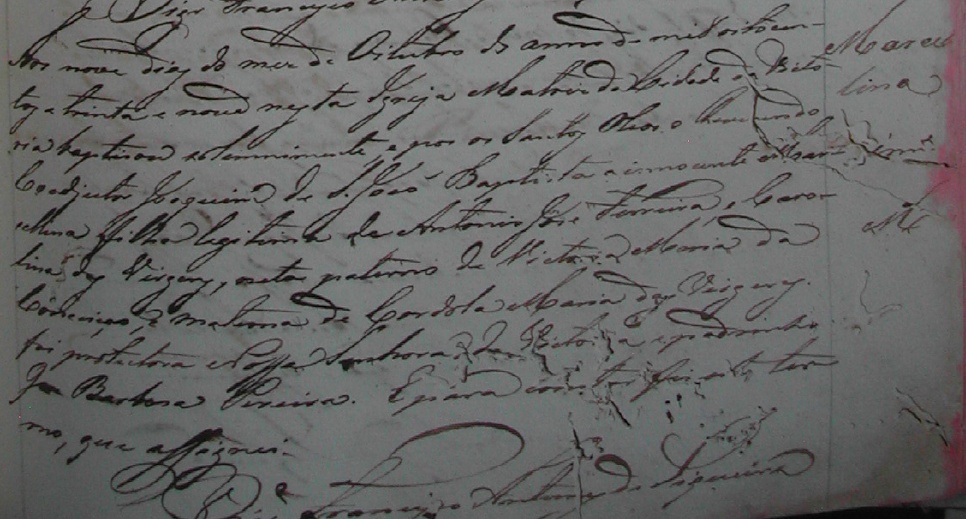 Vigr. Francisco
Aos nove dias do mez de Oitubro do anno de mil oitocen-
tos e trinta e nove nesta Igreja Matriz da Cidade da Victo-
ria baptisou solemnimente, e pos os Santos Oleos o Reverendo
Coadjutor Joaquim de S. José Baptista a innocente Mar-
cellina filha legitima de Antonio José Ferreira, e Caro-
lina das Virgens, neta paterna de Victoria Maria da
Conceição, e materna de Cordola Maria das Virgens.
foi protectora Nossa Senhora da Victoria e padrinho
Barbosa Pereira. E para constar fiz este ter-
mo, que assignei.
Vigro. Francisco Antunes de Siqueira
Marcel
lina